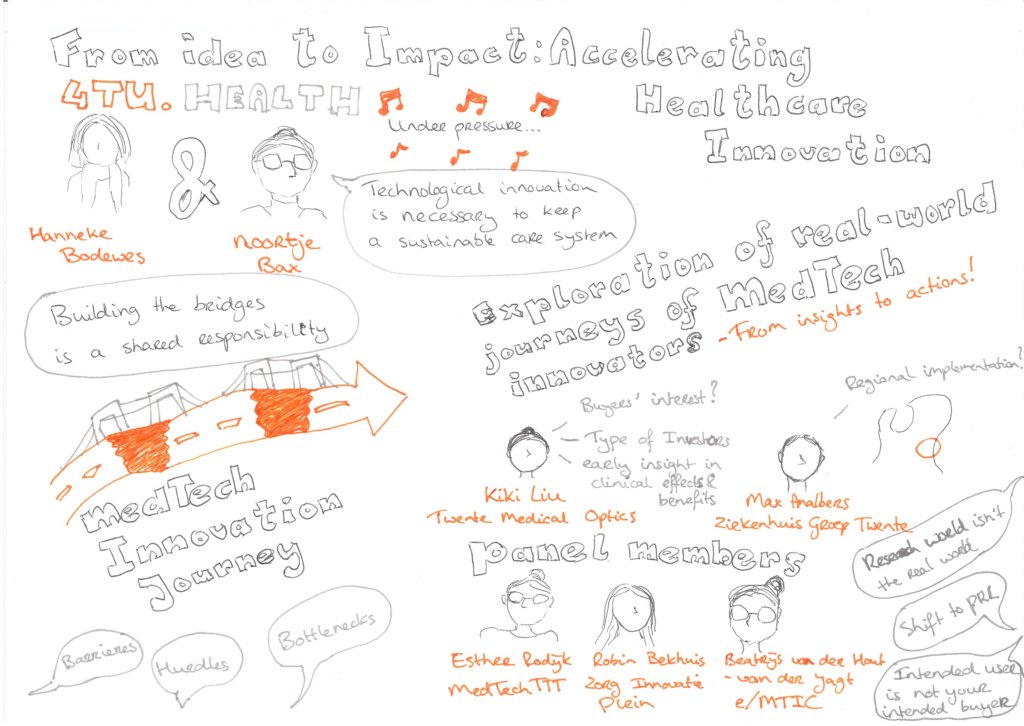 From idea to Impact: Accelerating
Healthcare
Innovation
4TU. HEALTH
Under pressure...
Hanneke
Bodewes
&
Noortje
Bax
Technological innovation
is necessary to keep
a sustainable care system
Building the bridges
is a shared responsibility
medTech
Innovation
Journey
Barrieres
Hurdles
Bottlenecks
Exploration of real-world
journeys of MedTech
innovators
- From insights to actions!
Buyers' interest?
Type of Investors
early insight in
clinical effects &
benefits
Kiki Liu
Twente Medical Optics
Regional implementation?
Max Analbers
Ziekenhuis Groep Twente
panel members
Esther Rodijk
MedTech TTT
Robin Bekhuis
Zorg Innovatie
Plein
Beatrijs van der Hout
- van der Jagt
e/MTIC
Research world isn't
the real world
Shift to PRL
Intended user
is not your
intended buyer